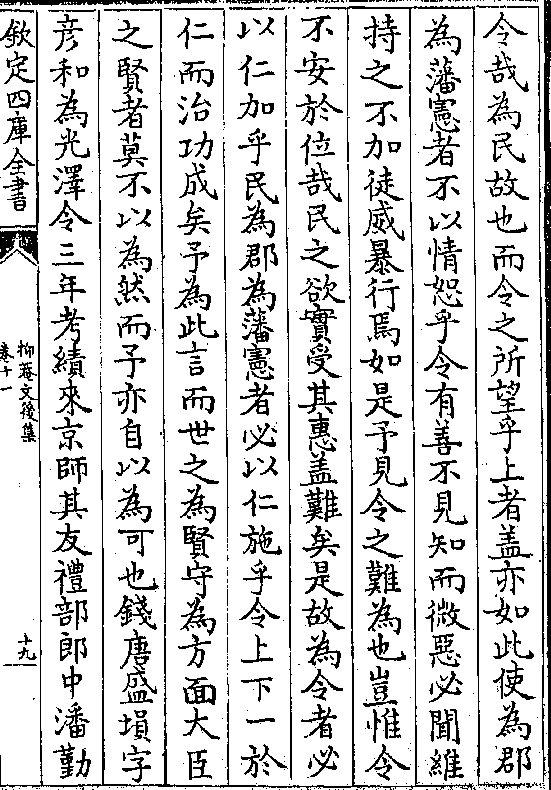 令哉為民故也而令之所望乎上者盖亦如此使為郡
為藩憲者不以情恕乎令有善不見知而微惡必聞維
持之不加徒威暴行焉如是予見令之難為也豈惟令
不安於位哉民之欲實受其惠盖難矣是故為令者必
以仁加乎民為郡為藩憲者必以仁施乎令上下一於
仁而治功成矣予為此言而世之為賢守為方面大臣
之賢者莫不以為然而予亦自以為可也錢唐盛塤字
彦和為光澤令三年考績來京師其友禮部郎中潘勤
欽定四庫全書
抑菴文後集
卷十一
十九